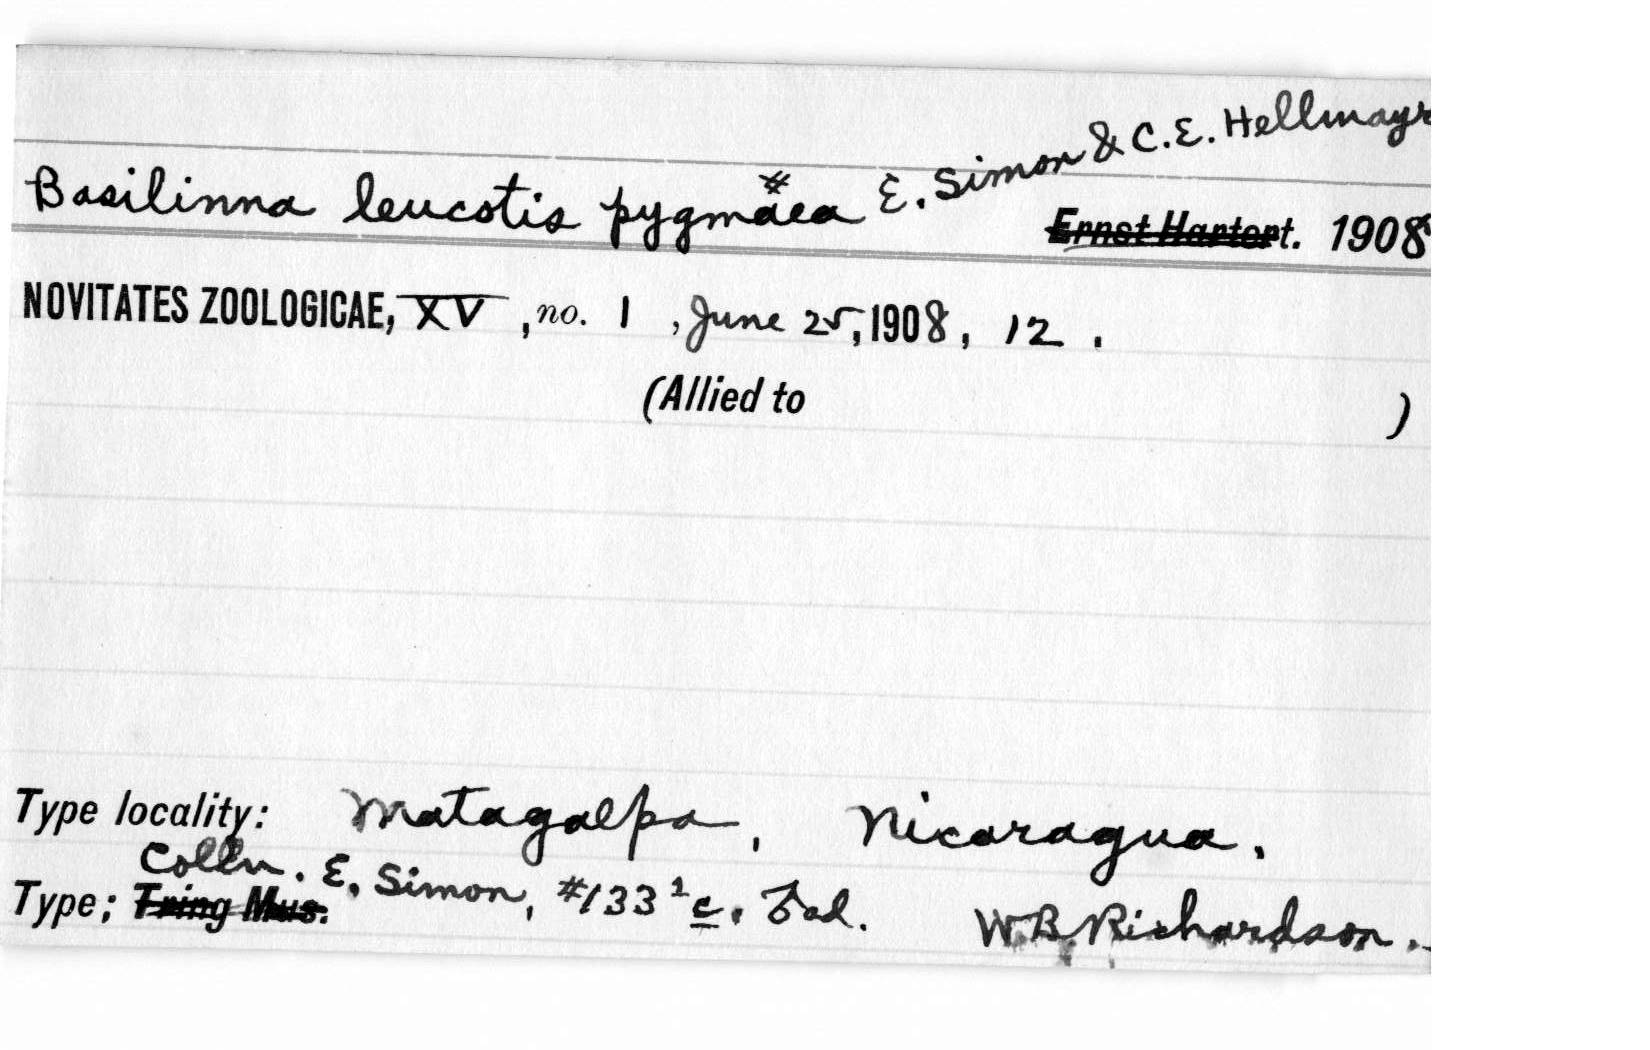 Basilinna leucotis pygmaea # E. Simon & C.E. Hellmayr
Ernst Hartert. 1908
NOVITATES ZOOLOGICAE, XV, no. 1, June 25, 1908, 12.
(Allied to )
Type locality: Matagalpa, Nicaragua.
Colln. E. Simon, #133 1 c. ♂ad. W.B. Richardson.
Type; Tring Mus.